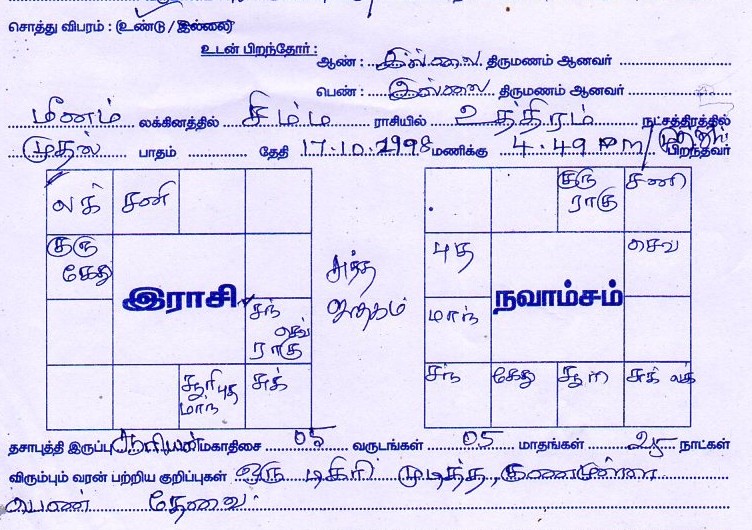 சொத்து விபரம் : (உண்டு / இல்லை)
உடன் பிறந்தோர் :
ஆண் : இல்லை திருமணம் ஆனவர்
பெண் : இல்லை திருமணம் ஆனவர்
மீனம் லக்கினத்தில் சிம்ம ராசியில் உத்திரம் நட்சத்திரத்தில்
முதல் பாதம் தேதி 17.10.1998 மணிக்கு 4.49 PM பிறந்தவர்
லக் சனி
குரு கேது
இராசி
சந் செவ் ராகு
சூரி புத மாந் சுக்
அந்த ஜாதகம்
குரு ராகு சனி
புத செவ
நவாம்சம்
மாந்
சந் கேது சூரி சுக் லக்
தசாபுத்தி இருப்பு சூரியன் மகாதிசை 05 வருடங்கள் 05 மாதங்கள் 25 நாட்கள்
விரும்பும் வரன் பற்றிய குறிப்புகள் ஒரு டிகிரி முடித்த, குணமுள்ள
பெண் தேவை